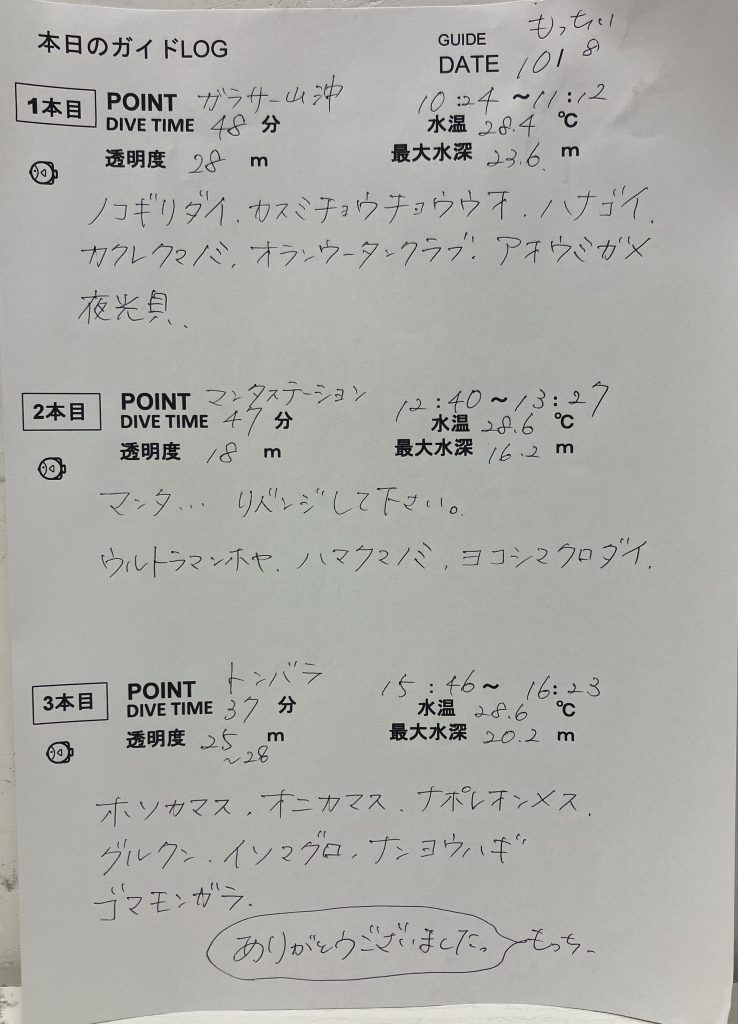 本日のガイドLOG
GUIDE もっちぃ
DATE 10/8
1本目 POINT ガラサー山沖 10:24 ~ 11:12
DIVE TIME 48 分 水温 28.4 ℃
透明度 28 m 最大水深 23.6 m
ノコギリダイ、カスミチョウチョウウオ、ハナゴイ、
カクレクマノミ、オランウータンクラブ、アオウミガメ
夜光貝、
2本目 POINT マンタステーション 12:40 ~ 13:27
DIVE TIME 47 分 水温 28.6 ℃
透明度 18 m 最大水深 16.2 m
マンタ… リベンジして下さい。
ウルトラマンホヤ、ハマクマノミ、ヨコシマクロダイ、
3本目 POINT トンバラ 15:46 ~ 16:23
DIVE TIME 37 分 水温 28.6 ℃
透明度 25~28 m 最大水深 20.2 m
ホソカマス、オニカマス、ナポレオンメス、
グルクン、イソマグロ、ナンヨウハギ
ゴマモンガラ、
ありがとうございましたっ もっちー